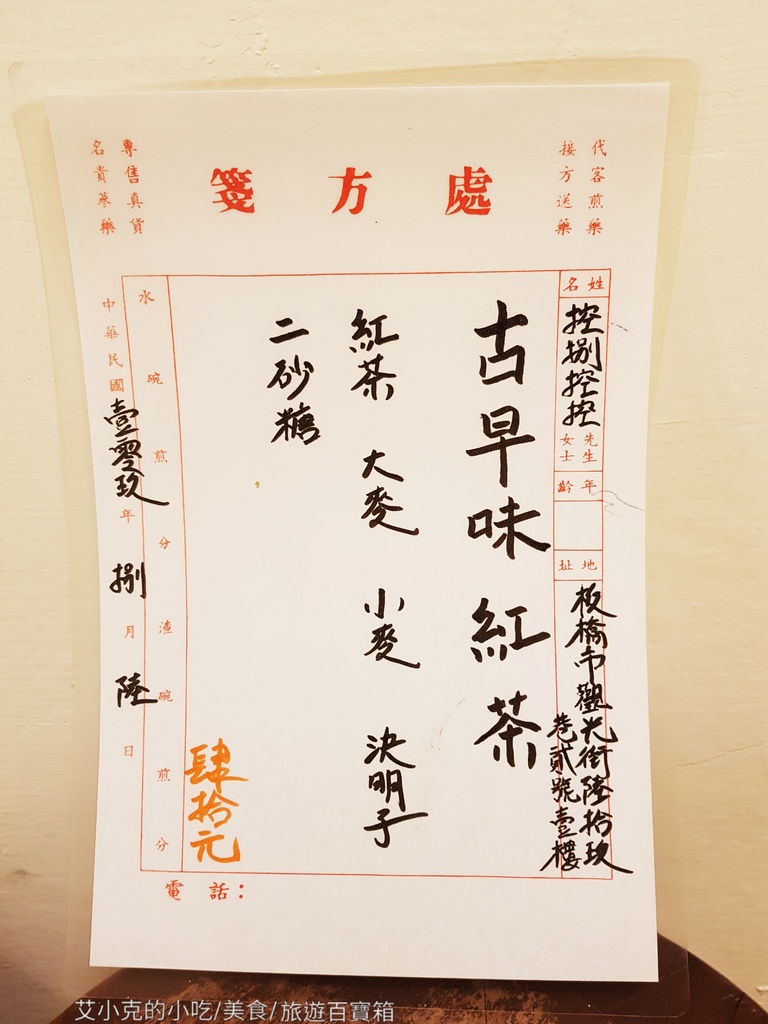 處方箋
代客煎藥
接方送藥
專售真貨
名貴蔘藥
姓名
控捌控控
先生
女士
年齡
地址
板橋市觀光街陸拾玖
巷貳號壹樓
古早味紅茶
紅茶 大麥 小麥 決明子
二砂糖
肆拾元
水 碗煎 分渣 碗煎 分
中華民國壹零玖年捌月陸日
電話：
艾小克的小吃/美食/旅遊百寶箱